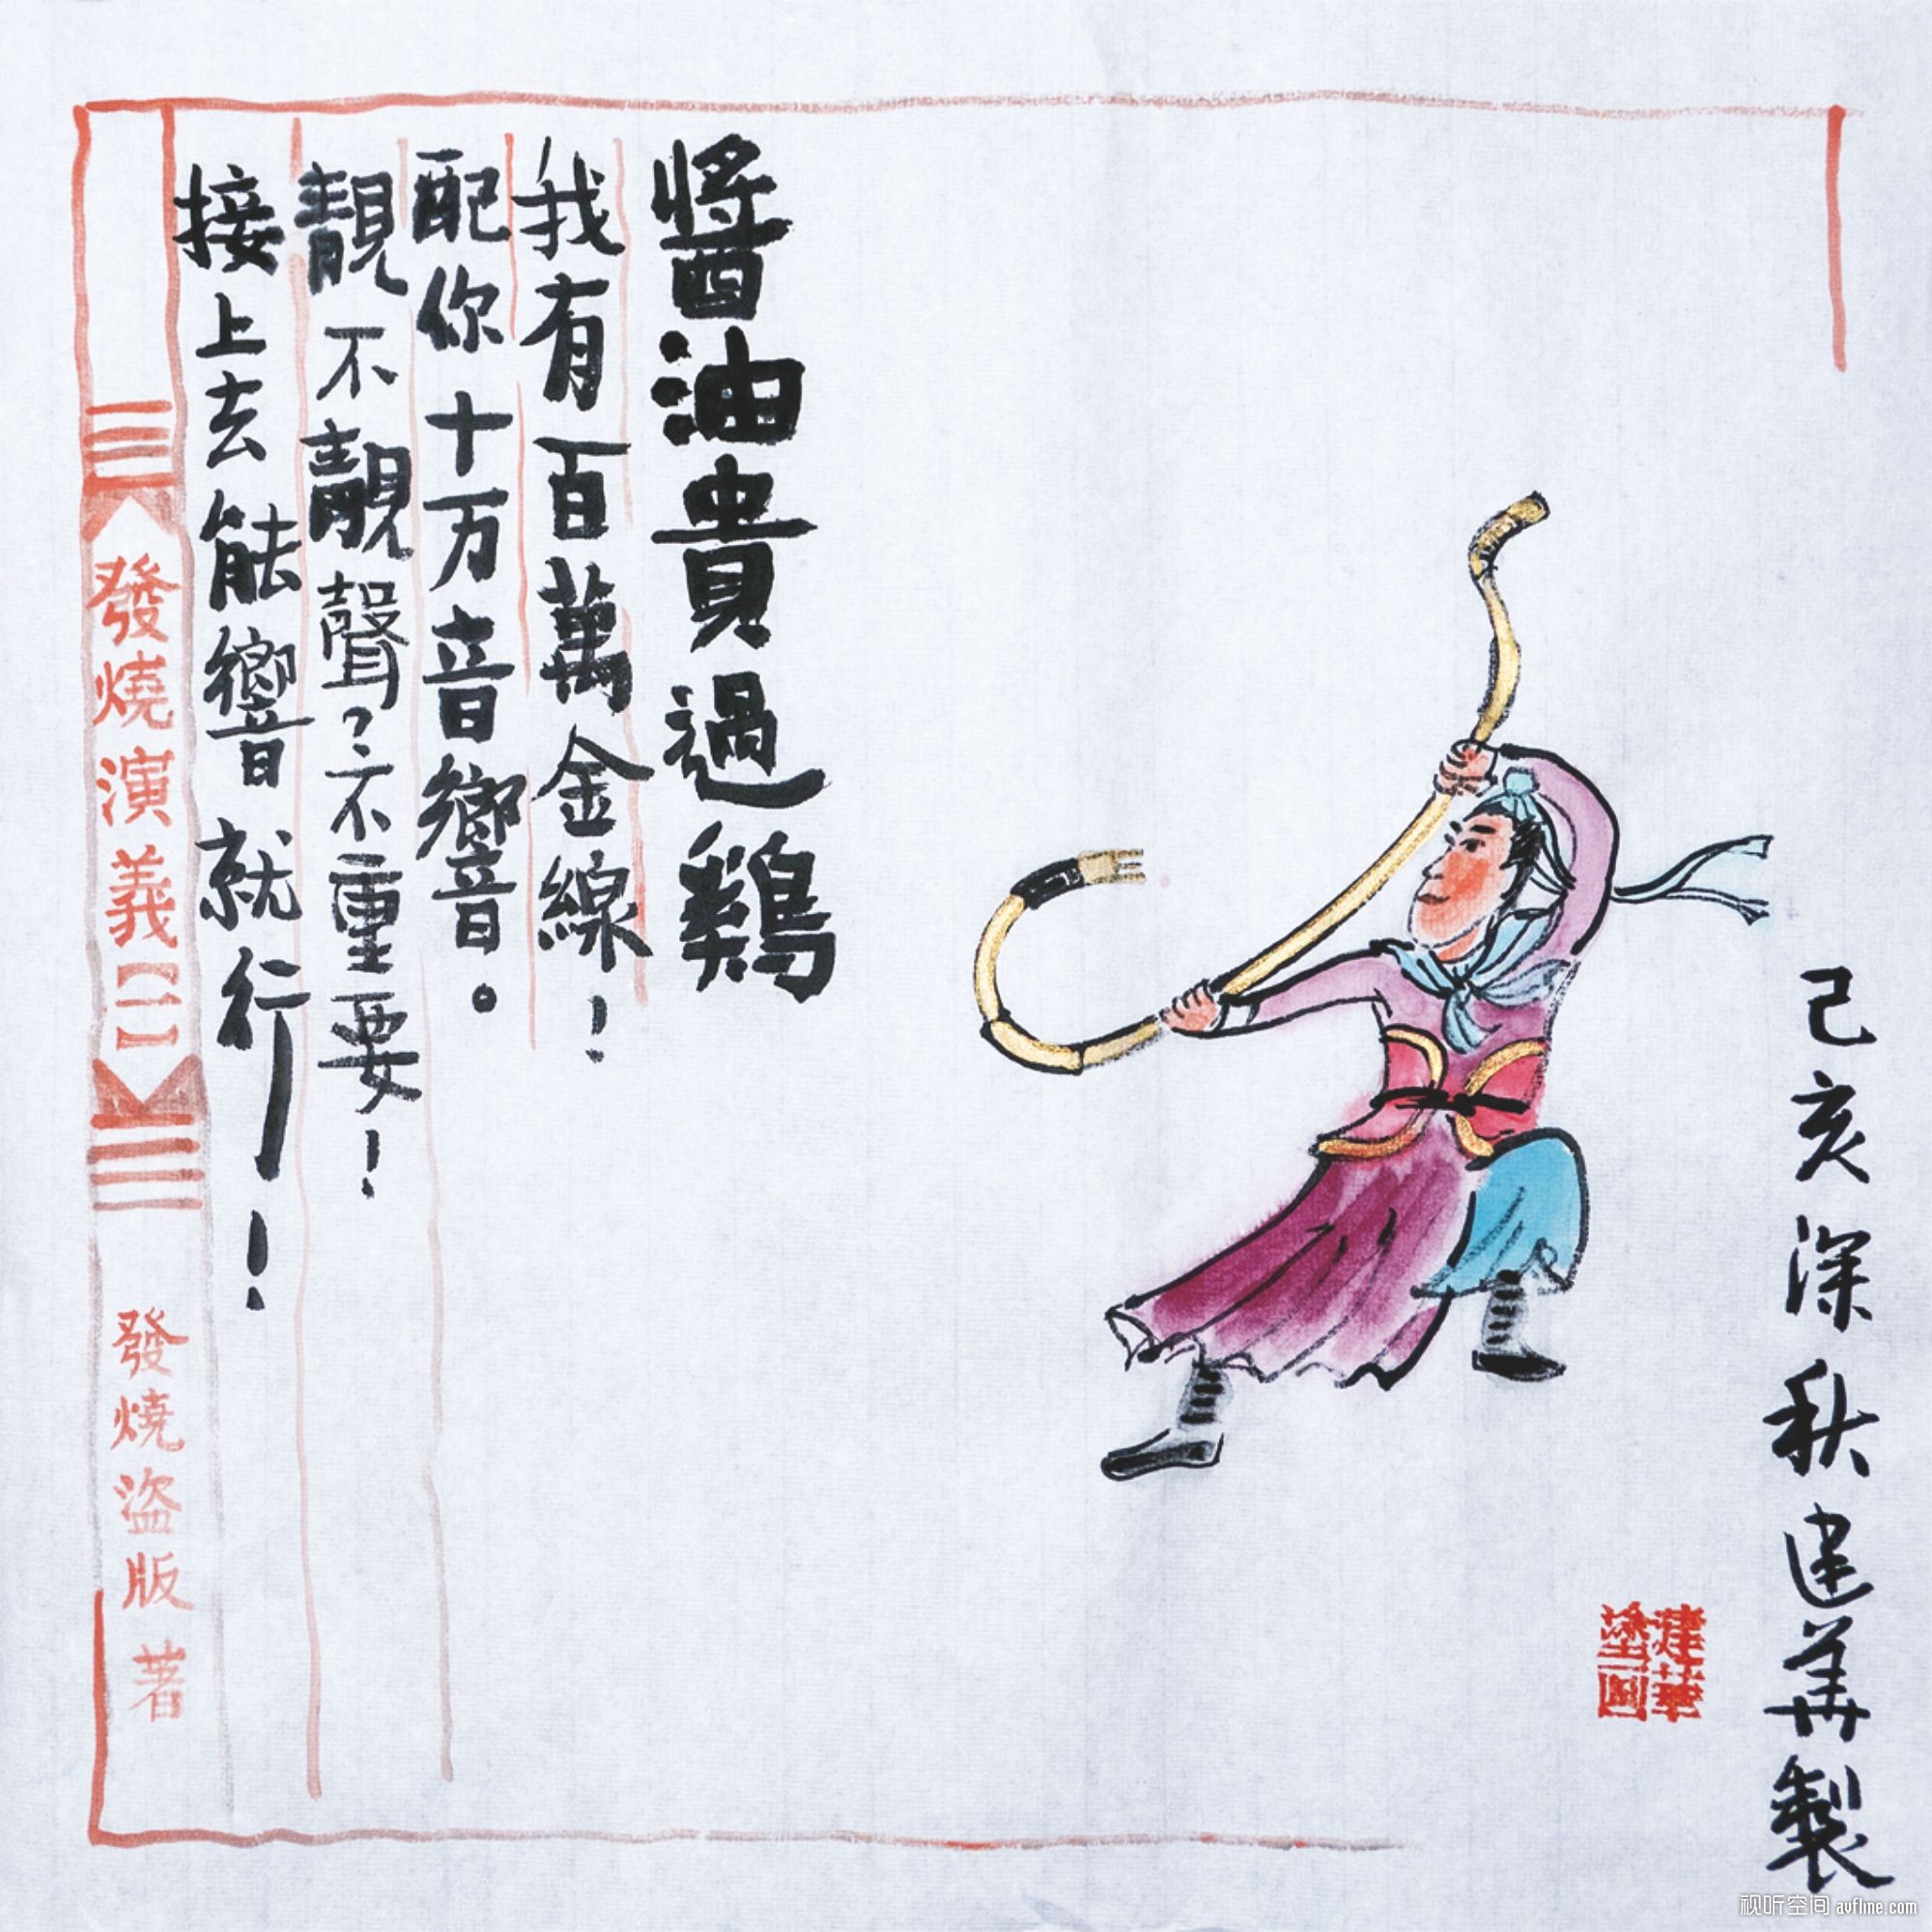 醬油貴過鷄
我有百萬金線！
配你十万音響。
靚不靚聲？不重要！
接上去能響就行！
發燒演義【一】
發燒盜版 著
己亥深秋建華製
建華
塗圖
视听空间 avfline.com